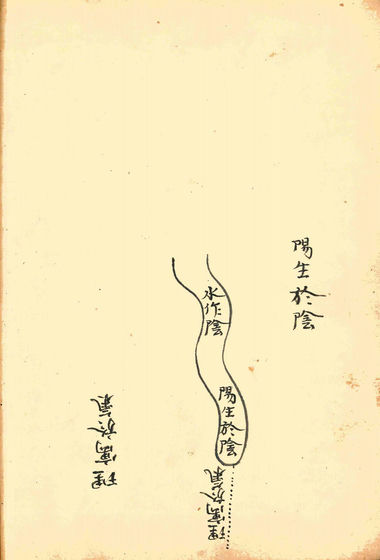 陽生於陰
水作陰
陽生於陰
理寓於氣
理寓於氣